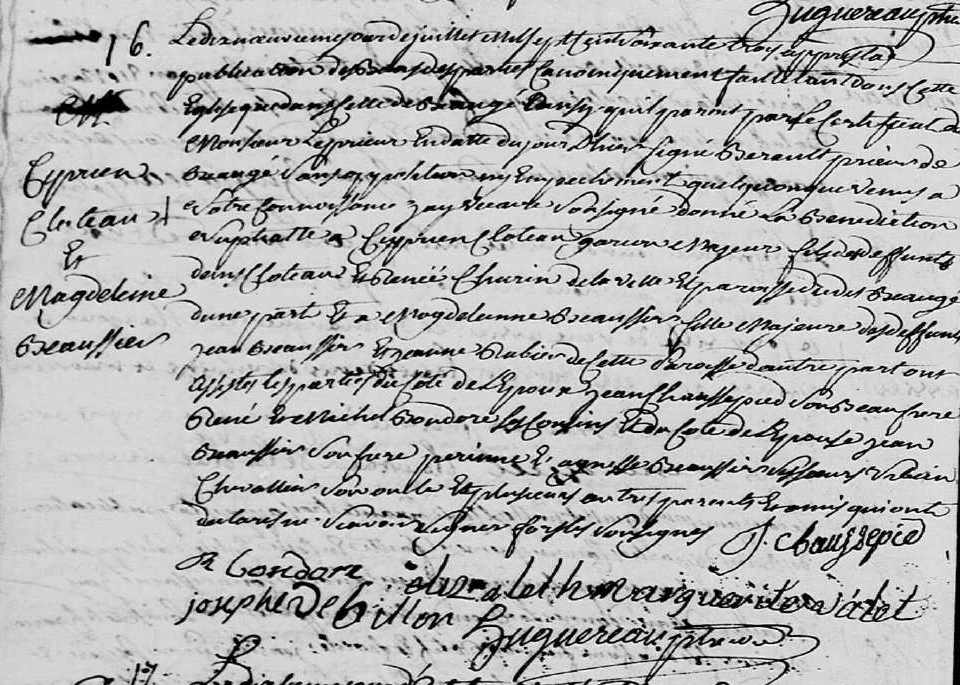 huguereau ptre
16.
Le dixneuvieme jour de juillet mil sept cent soixante trois apprés la
publication des bans des parties canoniquement faitte tant dans cette
Eglise que dans celle de Beaugé Ainsy quil paroit par le Certificat de
Monsieur Le prieur En datte du jour D'hier signé Berault prieur de
Beaugé sans opposition ny Empechement quelquonque venus a
Notre Connoissance j'ay vicaire soussigné donné La Benediction
Nuptialle a Cyprien Cloteau garcon Majeur fils des deffunts
Cloteau et Renée Churin de la ville Et paroisse dudit Beaugé
dune part Et a Magdelenne Beaussier fille Majeure des deffunts
Jean Beaussier Et Jeanne Rabier de Cette Paroisse dautre part ont
Assisté les parties du Coté de L'Epoux Jean Chaussepied son Beaufrere
René Et Michel Bondoré ses Cousins Et du Coté de L'Epouse Jean
Beaussier son frere perinne Et agnesse Beaussier ses soeurs Urbain
Chevallier son oncle Et plusieurs autres parents Et amis qui ont
declarés ne scavoir signer fors les soussignés
Cyprien
Cloteau
Et
Magdeleine
Beaussier
J. Chaussepied
R bondoré
elizabeth marguerite
joseph De billon
huguereau ptre
17